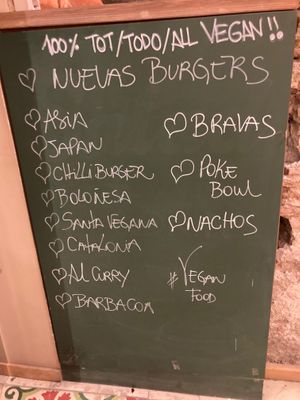 100% TOT/TODO/ALL VEGAN!!
♡ NUEVAS BURGERS
♡ ASIA
♡ JAPAN
♡ CHILLI BURGER
♡ BOLOÑESA
♡ SANTA VEGANA
♡ CATALONIA
♡ AL CURRY
♡ BARBACOA
♡ BRAVAS
♡ POKE
BOWL
♡ NACHOS
# VEGAN
FOOD